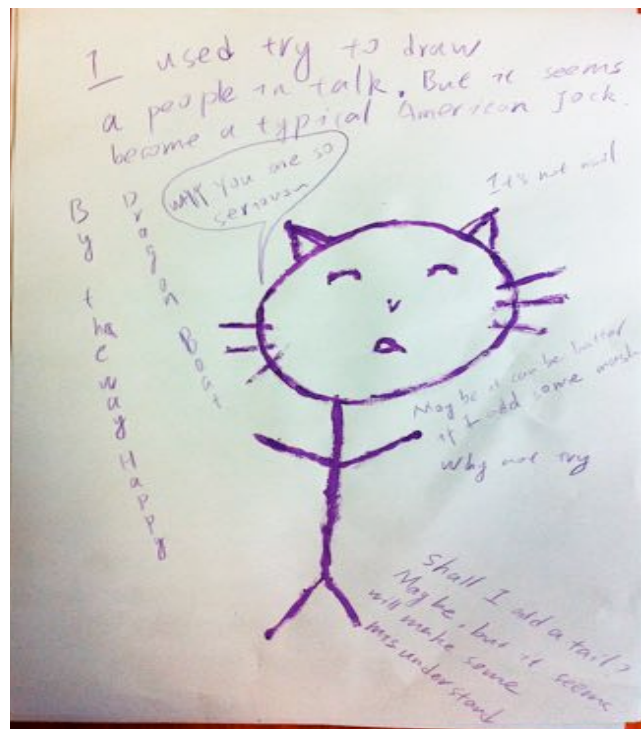 I used try to draw
a people in talk. But it seems
become a typical American Jock.
you are so
It's not
By the way Happy
Dragon Boat
Maybe it can be batter
if I add some
Why not try
Shall I add a tail?
Maybe, but it seems
will make some
misunderstand